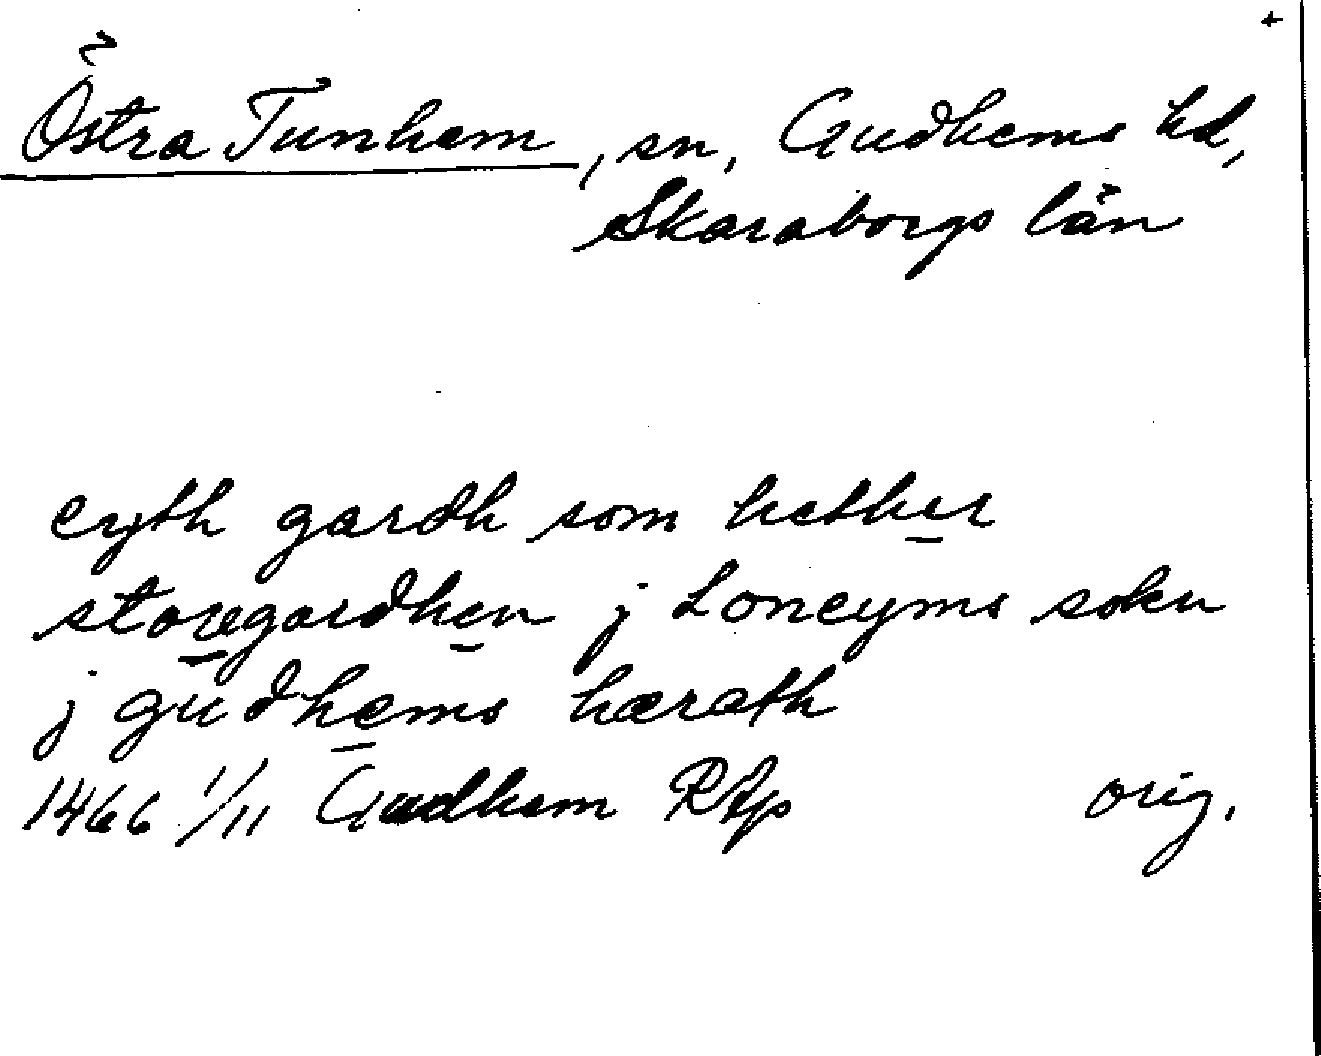 +
Östra Tunhem, sn, Gudhems hd,
Skaraborgs län
eyth gardh som hether
storegardhen j Loneyms sokn
j gudhems hærath
1466 1/11 Gudhem RAp orig.